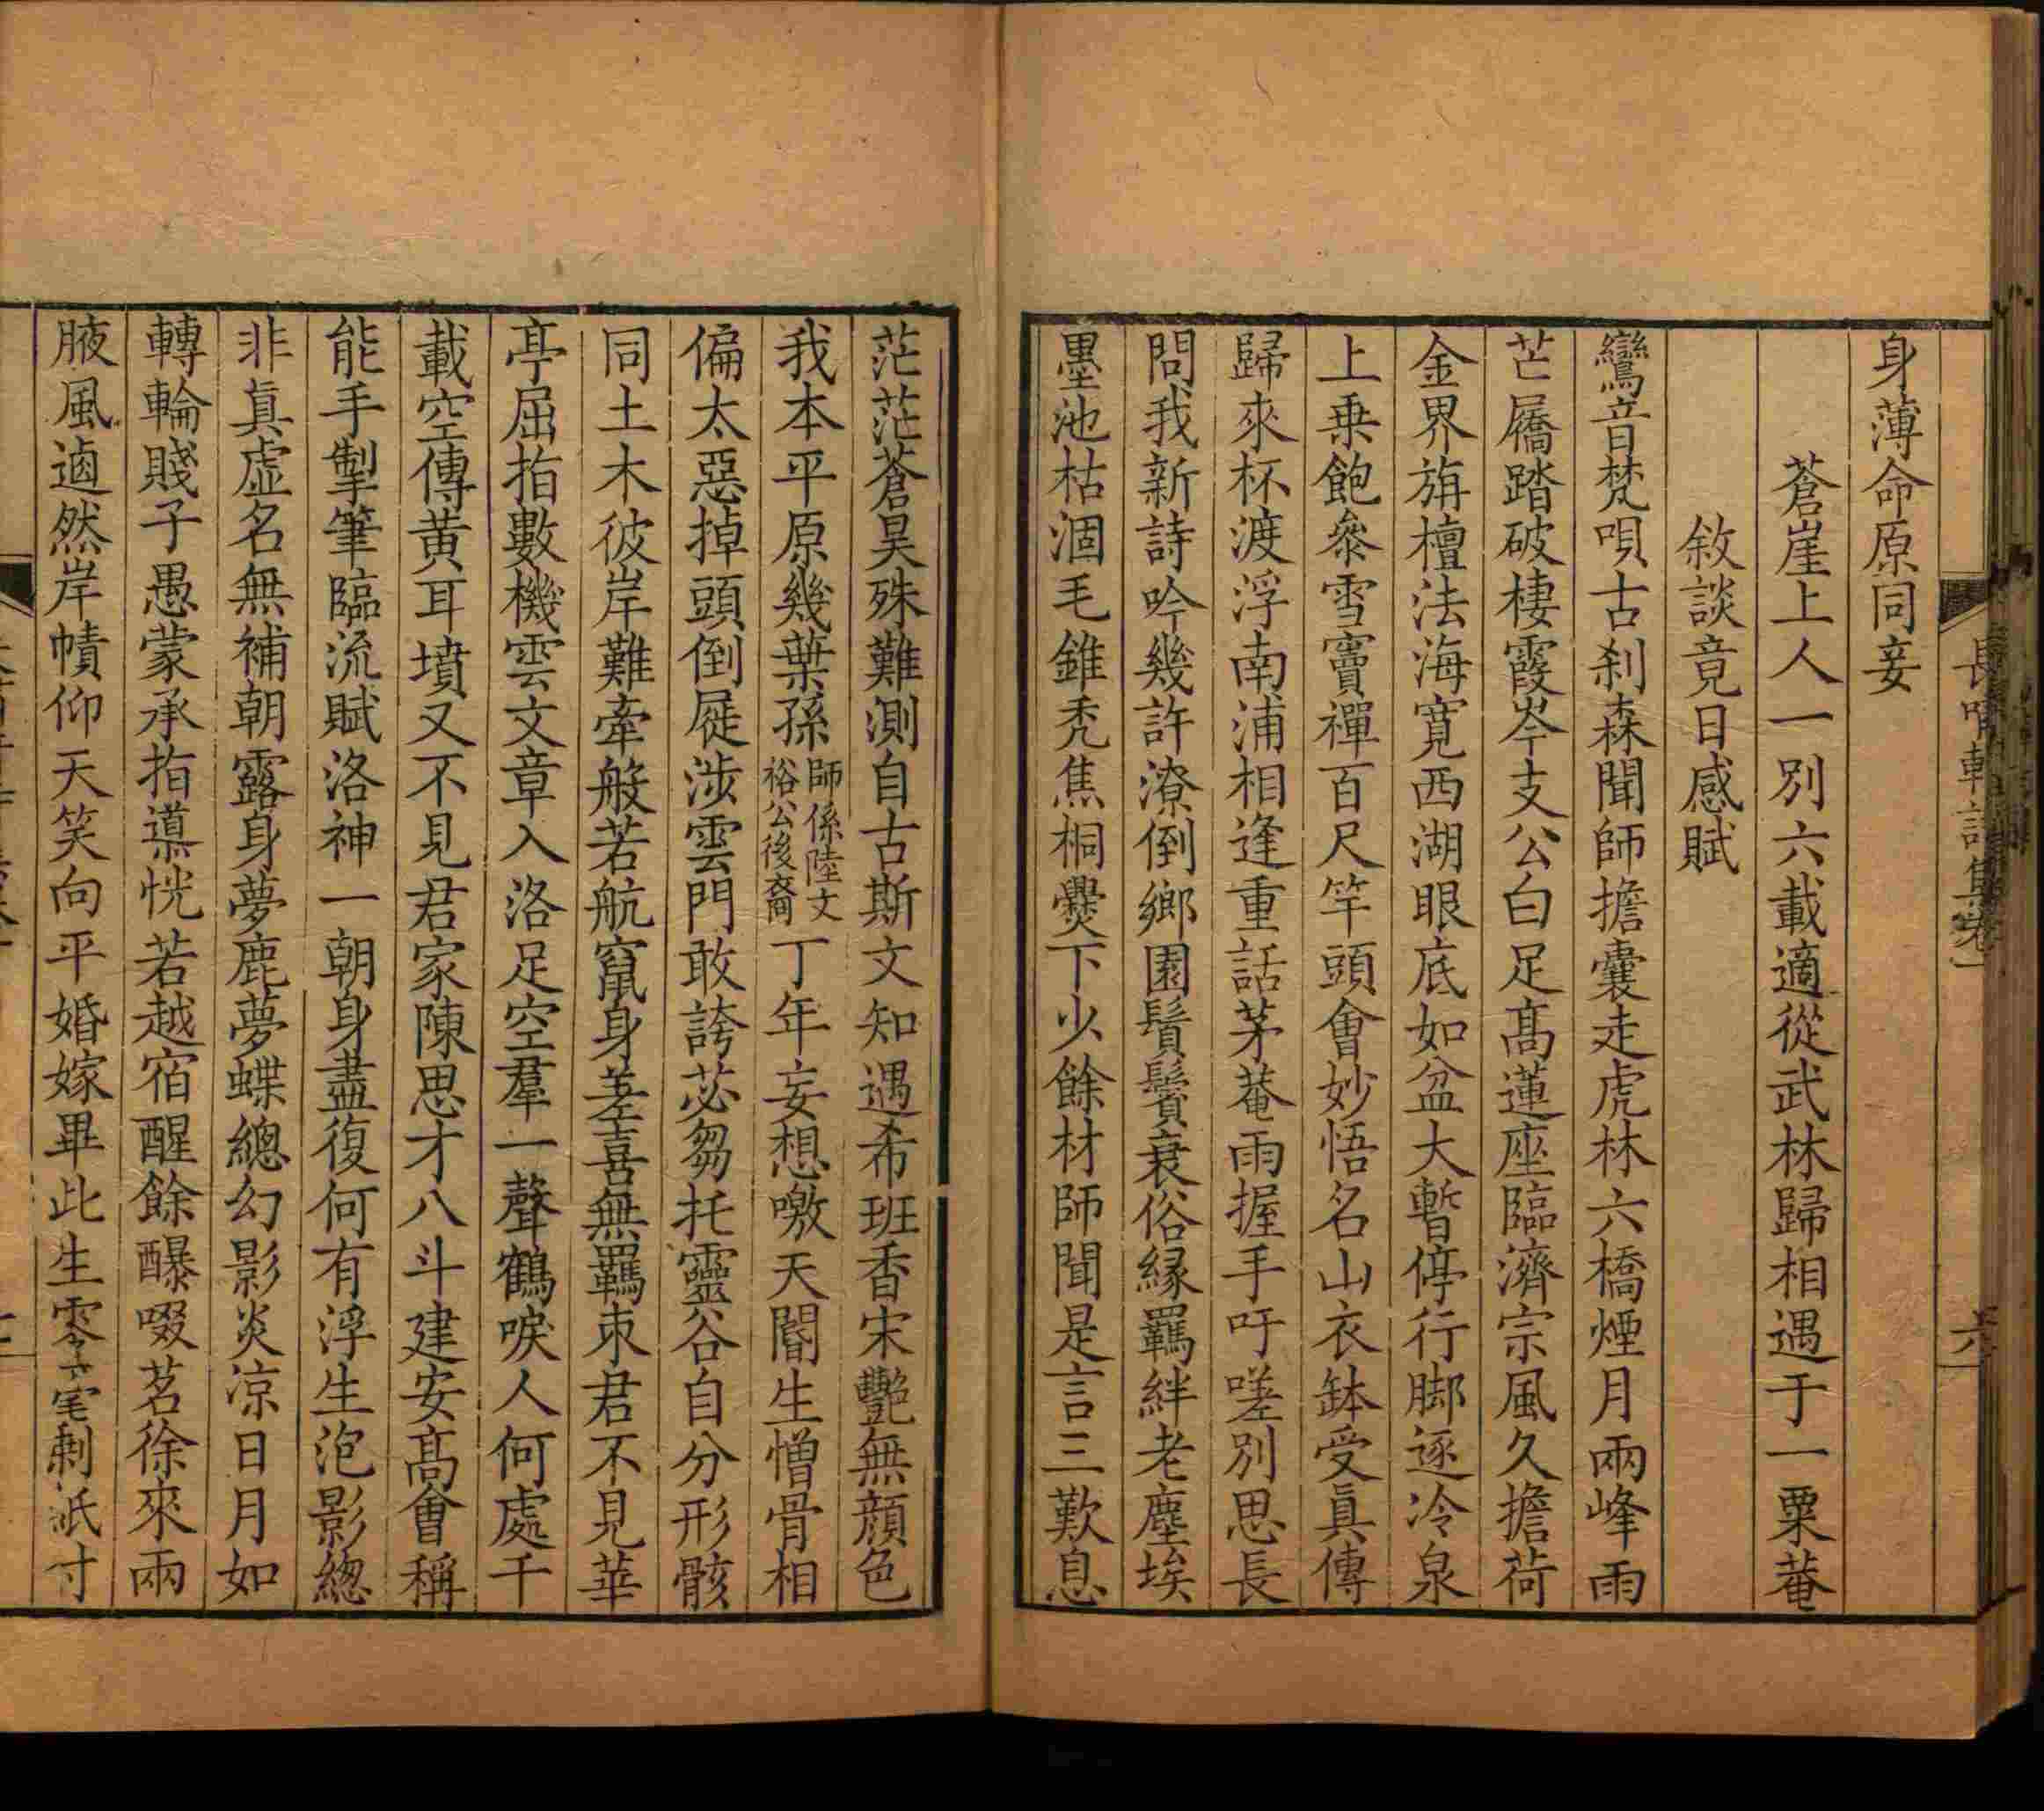 長嘯軒詩集卷一
六
身薄命原同妾
蒼崖上人一別六載適從武林歸相遇于一粟菴
敘談竟日感賦
鸞音梵唄古刹森聞師擔囊走虎林六橋煙月兩峰雨
芒屩踏破棲霞岑支公白足髙蓮座臨濟宗風久擔荷
金界旃檀法海寛西湖眼底如盆大暫停行脚逐冷泉
上乗飽叅雪竇禪百尺竿頭會妙悟名山衣缽受眞傳
歸來杯渡浮南浦相逢重話茅菴雨握手吁嗟別思長
問我新詩吟幾許潦倒鄉園鬚鬢衰俗緣羈絆老塵埃
墨池枯涸毛錐秃焦桐爨下少餘材師聞是言三歎息
茫茫蒼昊殊難測自古斯文知遇希班香宋艷無顔色
我本平原幾葉孫師係陸文裕公後裔丁年妄想噭天閽生憎骨相
偏太惡掉頭倒屣涉雲門敢誇苾芻托靈谷自分形骸
同土木彼岸難牽般若航竄身差喜無羈束君不見華
亭屈指數機雲文章入洛足空羣一聲鶴唳人何處千
載空傳黃耳墳又不見君家陳思才八斗建安髙會稱
能手掣筆臨流賦洛神一朝身盡復何有浮生泡影總
非眞虛名無補朝露身夢鹿夢蝶總幻影炎凉日月如
轉輪賤子愚蒙承指導恍若越宿醒餘醺啜茗徐來兩
腋風逌然岸幘仰天笑向平婚嫁畢此生零毫剩紙寸